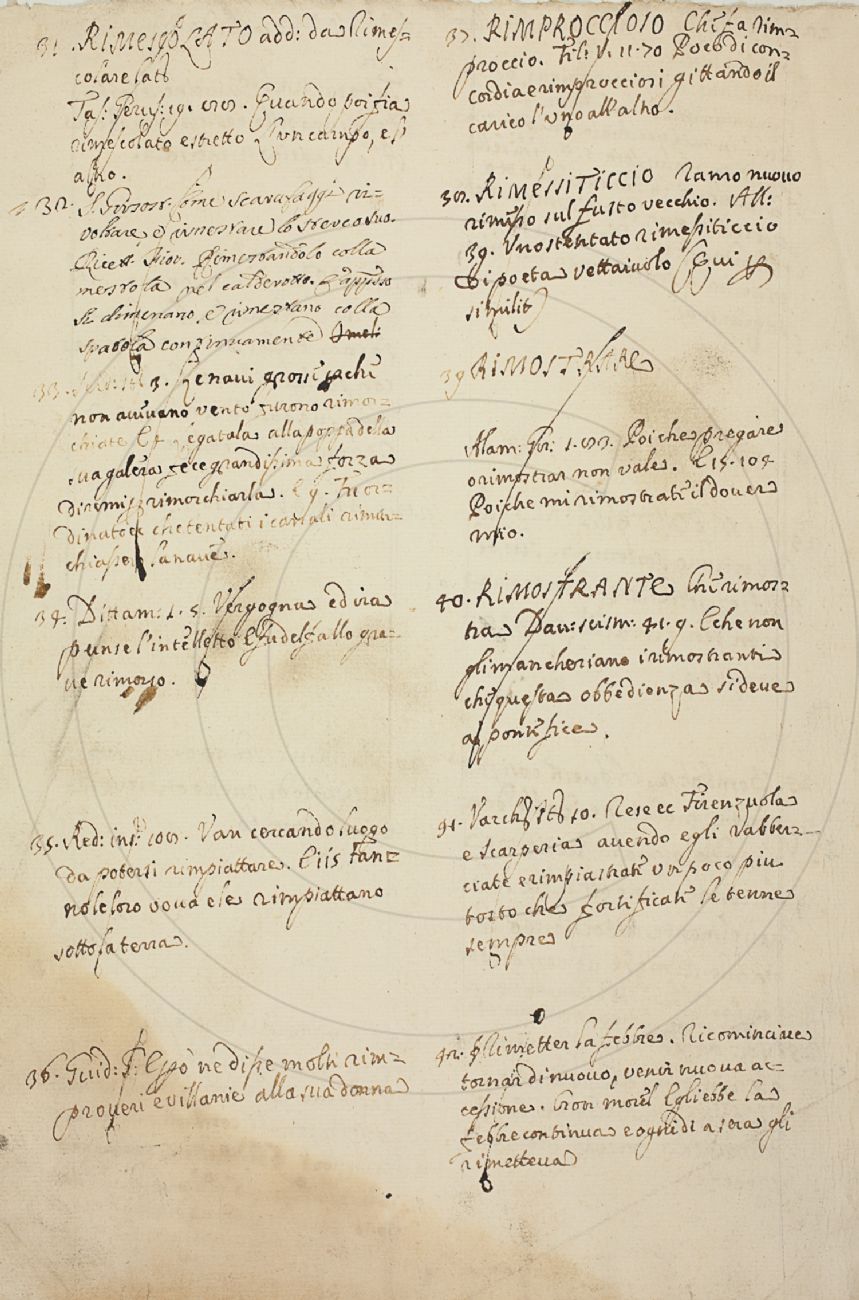 31. RIMESCOLATO add: da Rimes=
colare lat
Tass. Gerus: 19. 28. Quando poi sia
rimescolato e stretto L'un campo, e l'
altro.
32. come scarafaggi ri-
voltare e rimestare lo sterco suo.
Ricett. Fior. Rimestandolo colla
mestola nel calderotto. E appresso
si dimenano, e rimestano colla
spatola continuamente
33. 3. Le navi grosse che
non avevano vento furono rimor=
chiate E Legatola alla poppa della
sua galera fece grandissima forza
di remi rimorchiarla. E 9. Fu or=
dinato che tentati i canali rimor=
chiasse la nave.
34. Dittam: 1. 5. Vergogna ed ira
punse l'intelletto E fudelsallo gra=
ve rimorso.
35. Red: ins: 108. Van cercando luogo
da potersi rimpiattare. E 115 Fan=
nole loro uova e le rimpiattano
sotto la terra.
36. Guid: G: Espo' ne disse molti rim=
proveri e villanie alla sua donna
37. RIMPROCCIOSO Che fa rim=
proccio. Fil: V. 11. 70 Poco di con=
cordia e rimprocciosi gittando il
carico l'uno all'altro.
38. RIMESSITICCIO Ramo nuovo
rimesso sul fusto vecchio. All:
39. Uno stentato rimessiticcio
Di poeta vettaiuolo (Qui p
similit)
39 RIMOSTRARE
Alam: Gir: 1. 83. Poiche pregare
o rimostrar non vale. E 15. 104
Poiche mi rimostrate il dover
mio.
40. RIMOSTRANTE Che rimos=
tra Dav: scism: 41. 9. E che non
gli mancheriano i rimostranti
che questa obbedienza si deve
al pontefice.
41. Varch: St: 10. Rese ec Firenzuola
e Scarperia avendo egli rabber=
ciate e rimpiastrate un poco piu
tosto che fortificate le tenne
sempre
42. Rimetter la febbre. Ricominciare
tornar di nuovo, venir nuova ac=
cessione. Cron Morel Egli ebbe la
febbre continua e ogni dì a sera gli
rimetteva